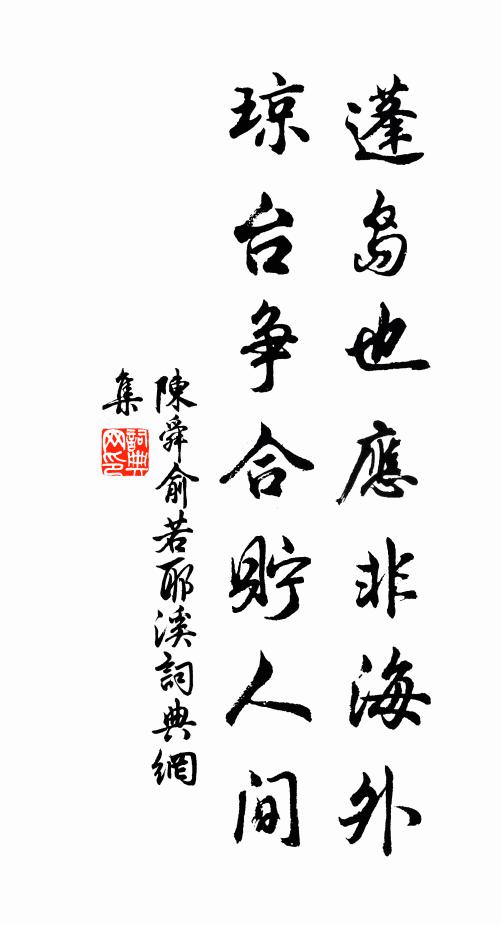 蓬島也應非海外
琼台争合貯人间
陳舜俞若耶溪詞典網
集
詞典
网印